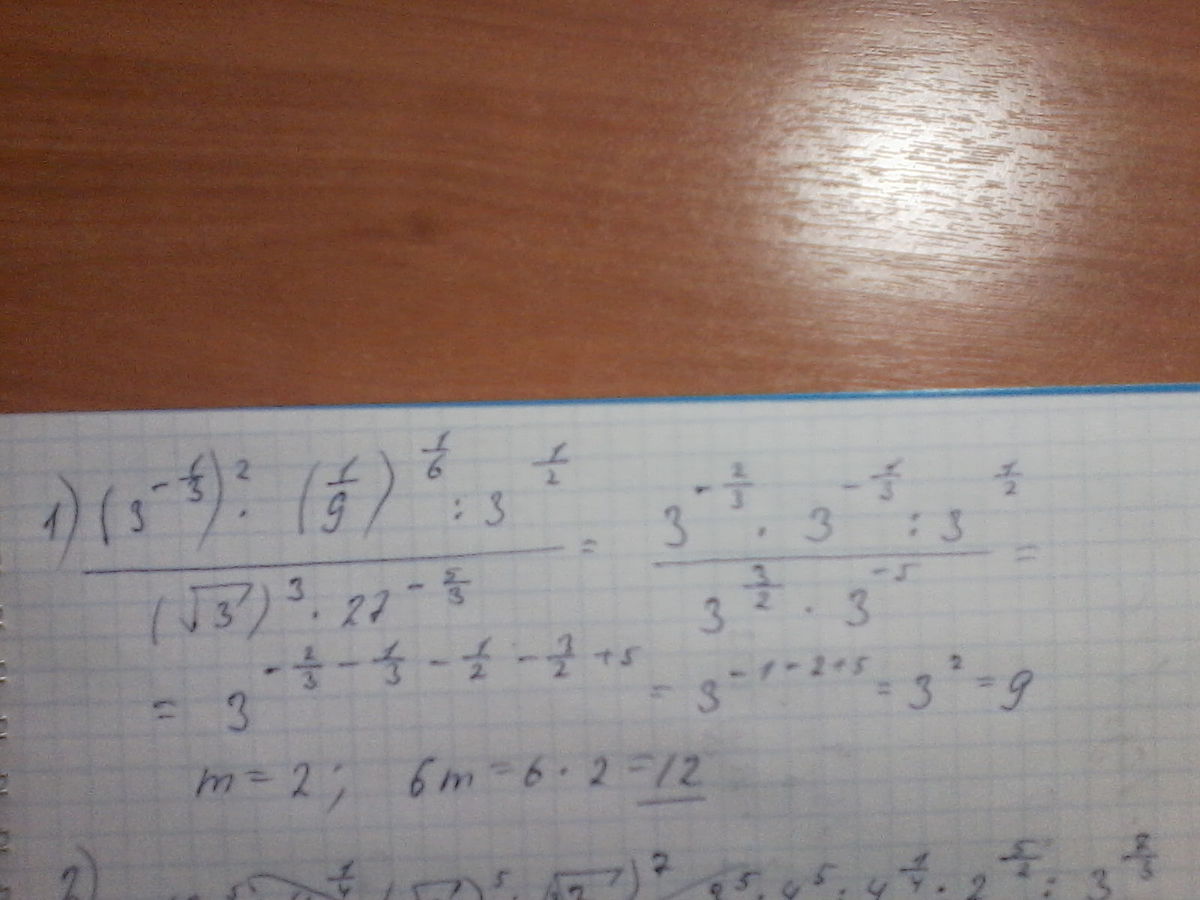 1) ((3^(-1/3))^2 · (1/9)^(1/6) : 3^(1/2)) / ((√3)^3 · 27^(-5/3)) = (3^(-2/3) · 3^(-1/3) : 3^(1/2)) / (3^(3/2) · 3^(-5)) =
= 3^(-2/3 - 1/3 - 1/2 - 3/2 + 5) = 3^(-1-2+5) = 3^2 = 9
m = 2; 6m = 6 · 2 = 12
2)